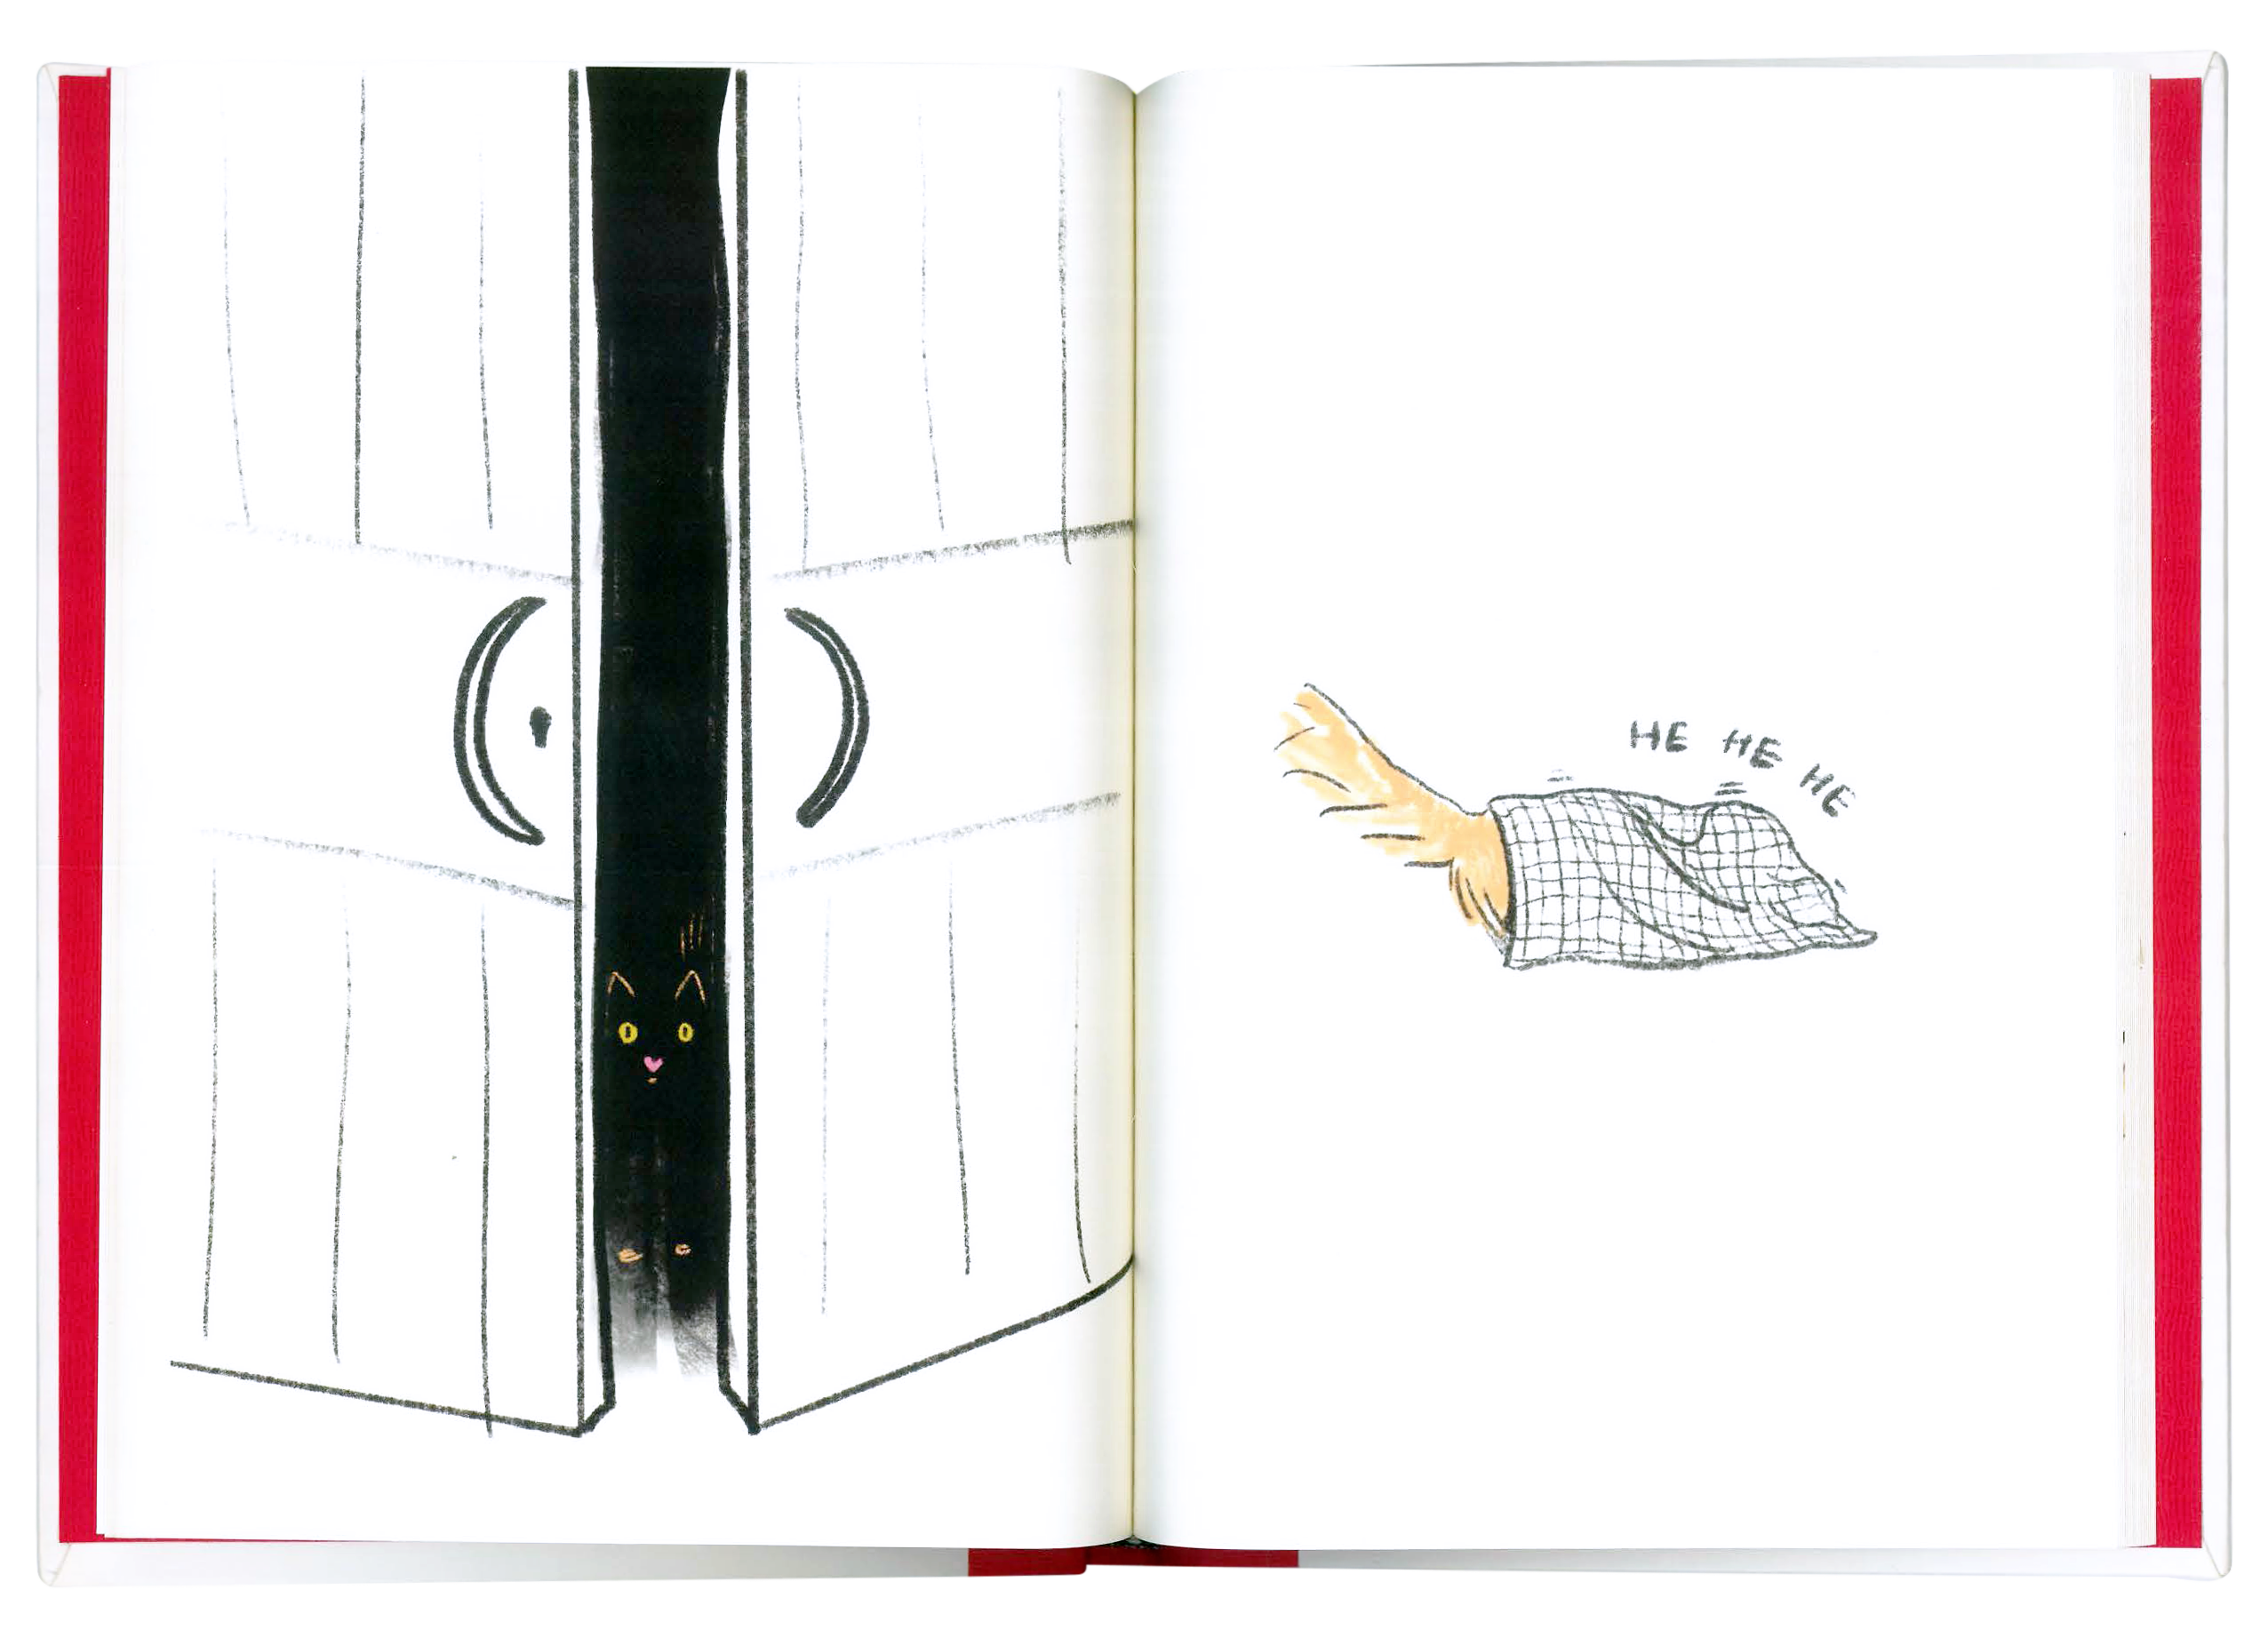 HE HE HE